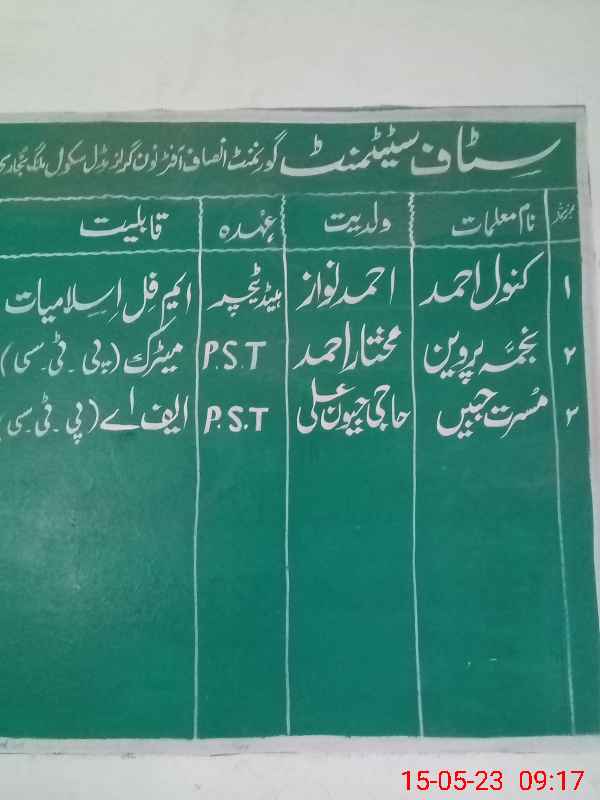 سٹاف سٹیٹمنٹ گورنمنٹ انصاف آفٹرنون گرلز مڈل سکول
نام معلمات ولدیت عہدہ قابلیت
۱ کنول احمد احمد نواز ہیڈ ٹیچر ایم فل اسلامیات
۲ نجمہ پروین مختار احمد P.S.T میٹرک (پی ۔ ٹی ۔ سی)
۳ مسرت جبیں حاجی جیون علی P.S.T ایف اے (پی ۔ ٹی ۔ سی)
15-05-23 09:17